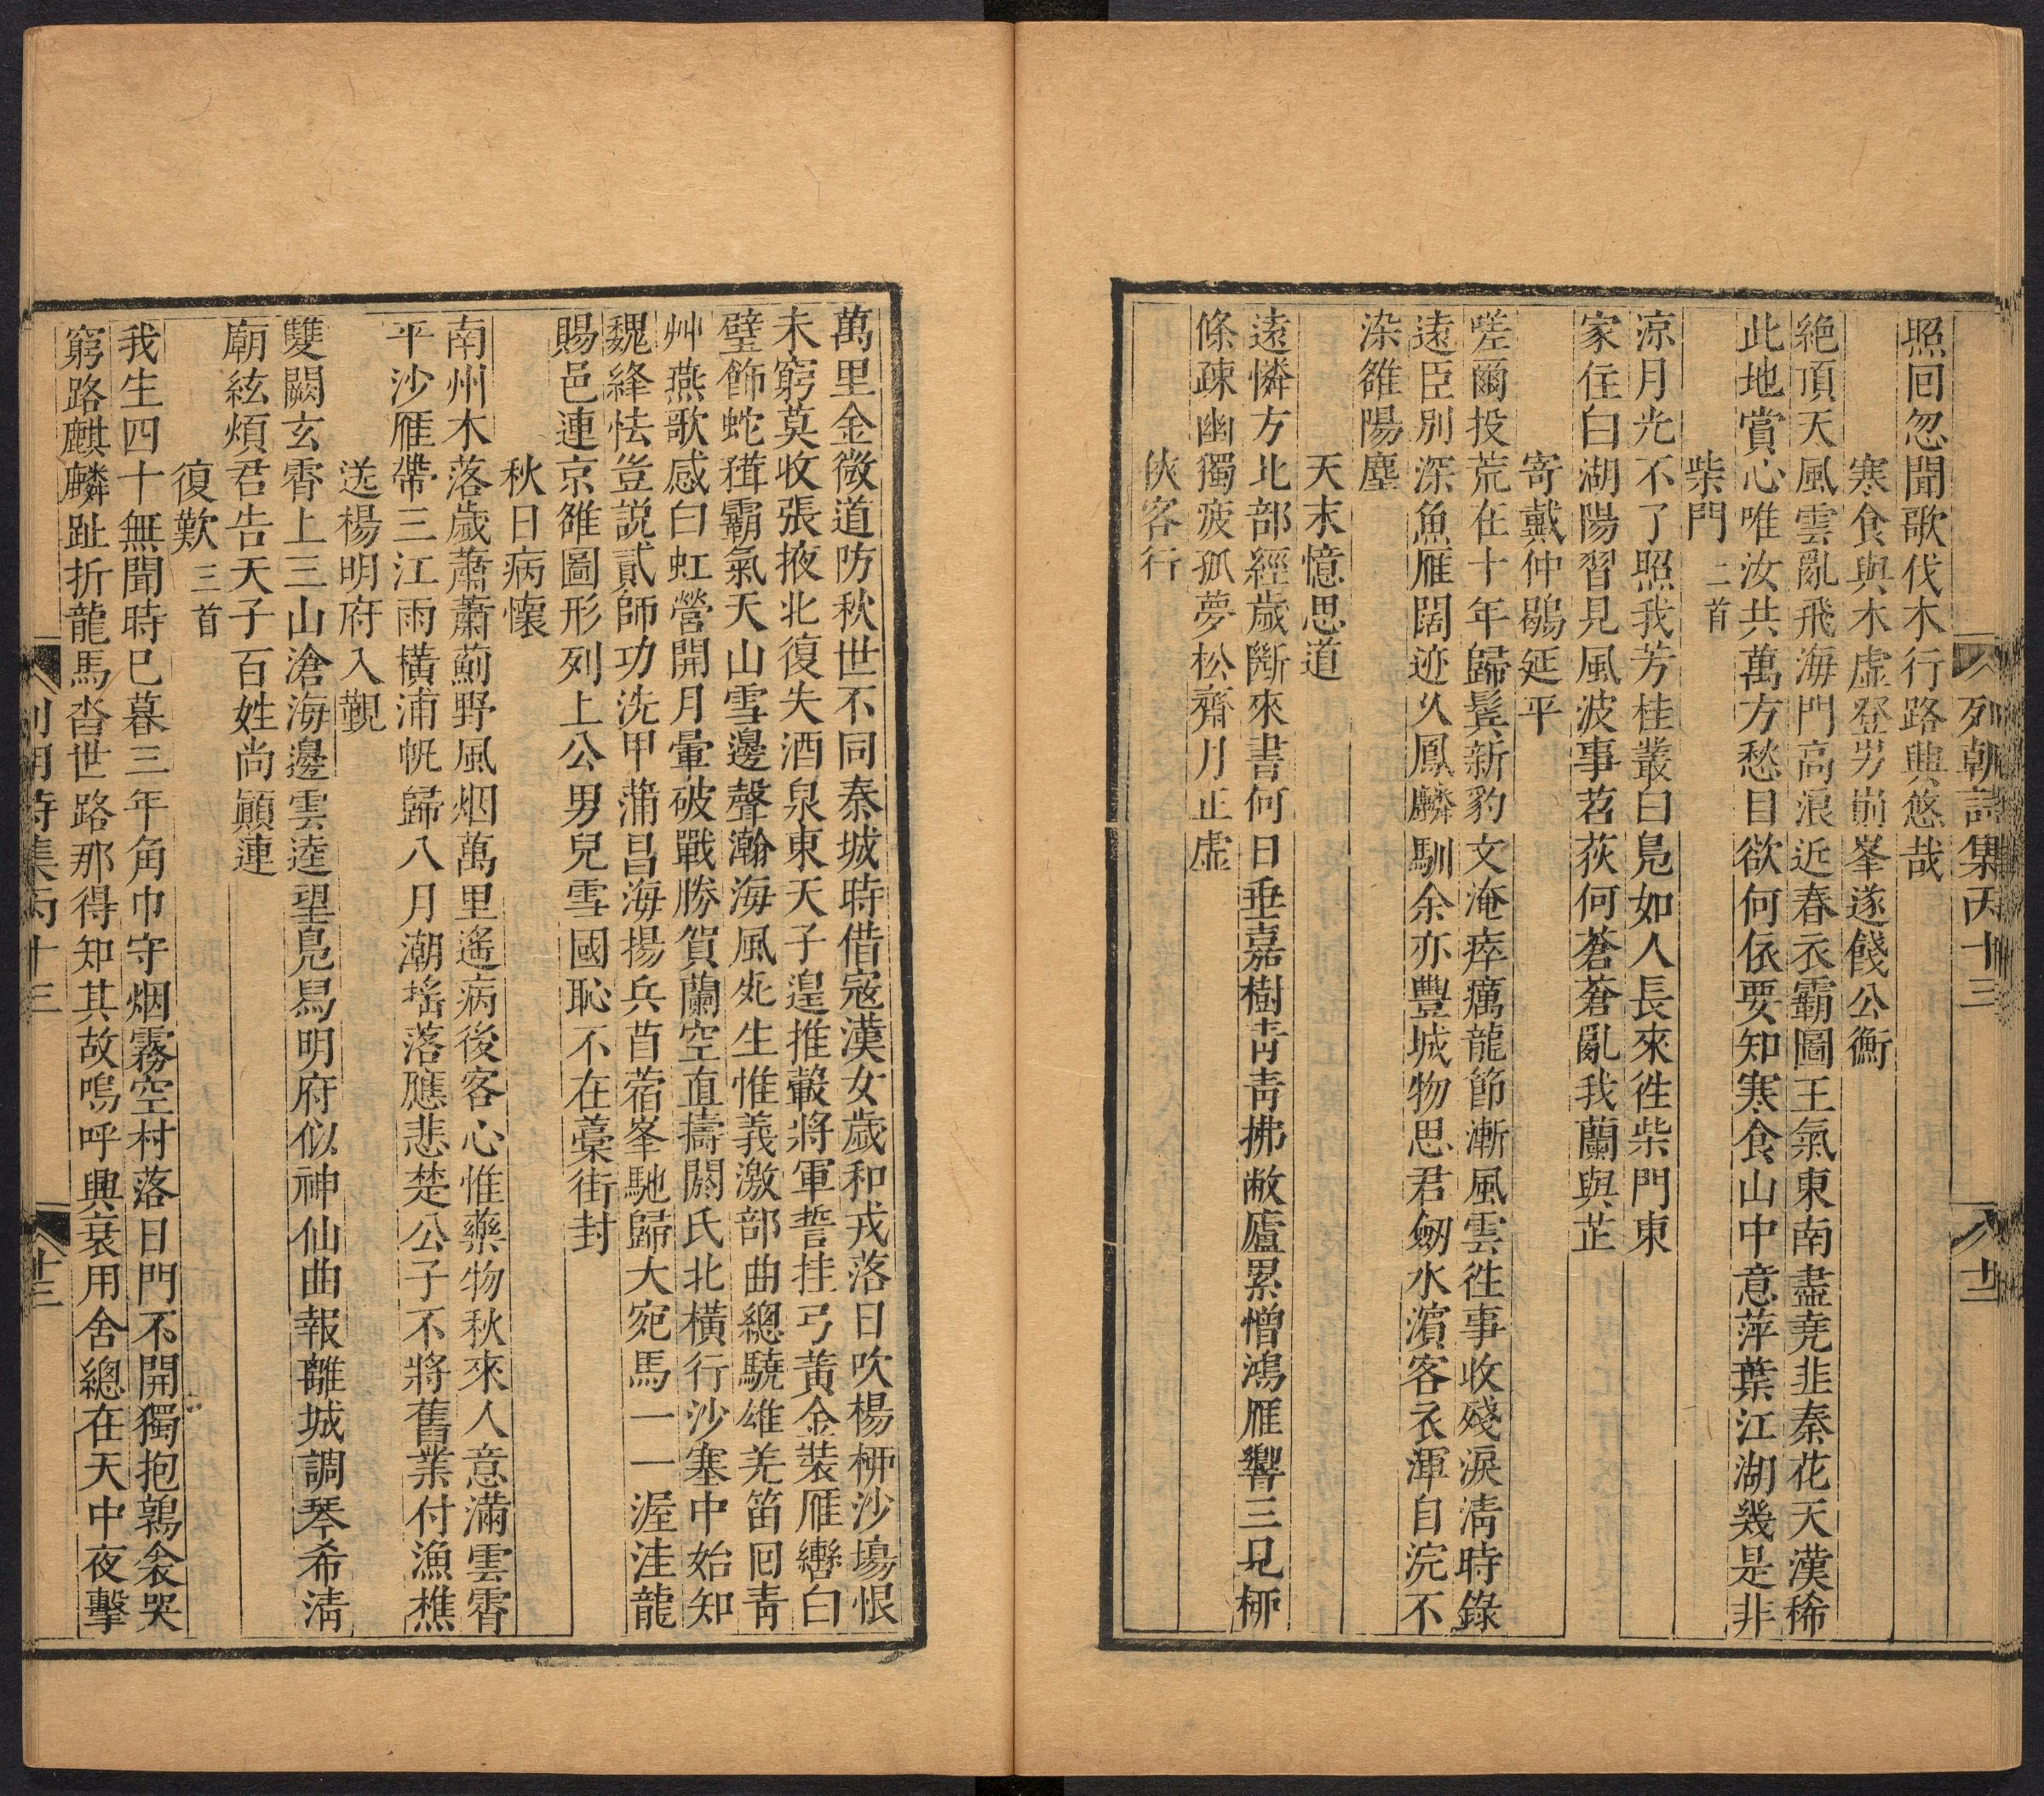 列朝詩集丙十三 十二
照回忽聞歌伐木行路興悠哉
寒食與木虛登岃崱峯遂餞公衡
絶頂天風雲亂飛海門高浪近春衣霸圖王氣東南盡堯韭秦花天漢稀
此地賞心唯汝共萬方愁目欲何依要知寒食山中意萍葉江湖幾是非
柴門二首
凉月光不了照我芳桂叢白鳧如人長來徃柴門東
家住白湖陽習見風波事苕荻何蒼蒼亂我蘭與芷
寄戴仲鶡延平
嗟爾投荒在十年歸鬂新豹文淹瘴癘龍節漸風雲徃事收殘淚淸時錄
遠臣別深魚雁闊迹久鳳麟馴余亦豐城物思君劒水濱客衣渾自浣不
染雒陽塵
天末憶思道
遠憐方北部經歲斷來書何日垂嘉樹靑靑拂敝廬累憎鴻雁響三見柳
條疎幽獨疲孤夢松齋月正虛
俠客行
萬里金微道防秋世不同秦城時借寇漢女歲和戎落日吹楊柳沙塲恨
未窮莫收張掖北復失酒泉東天子遑推轂將軍誓挂弓黃金裝雁轡白
璧飾蛇䩸霸氣天山雪邊聲瀚海風死生惟義激部曲總驍雄羌笛回靑
艸燕歌感白虹營開月暈破戰勝賀蘭空直擣閼氏北橫行沙塞中始知
魏絳怯豈説貳師功洗甲蒲昌海揚兵苜蓿峯馳歸大宛馬一一渥洼龍
賜邑連京雒圖形列上公男兒雪國恥不在藁街封
秋日病懷
南州木落歲蕭蕭薊野風烟萬里遙病後客心惟藥物秋來人意滿雲霄
平沙雁帶三江雨橫浦帆歸八月潮揺落應悲楚公子不將舊業付漁樵
送楊明府入覲
雙闕玄霄上三山滄海邊雲逵望鳧舄明府似神仙曲報離城調琴希淸
廟絃煩君告天子百姓尚顚連
復歎三首
我生四十無聞時已暮三年角巾守烟霧空村落日門不開獨抱鶉衾哭
窮路麒麟趾折龍馬沓世路那得知其故嗚呼興衰用舍總在天中夜擊
列朝詩集丙十三 十三